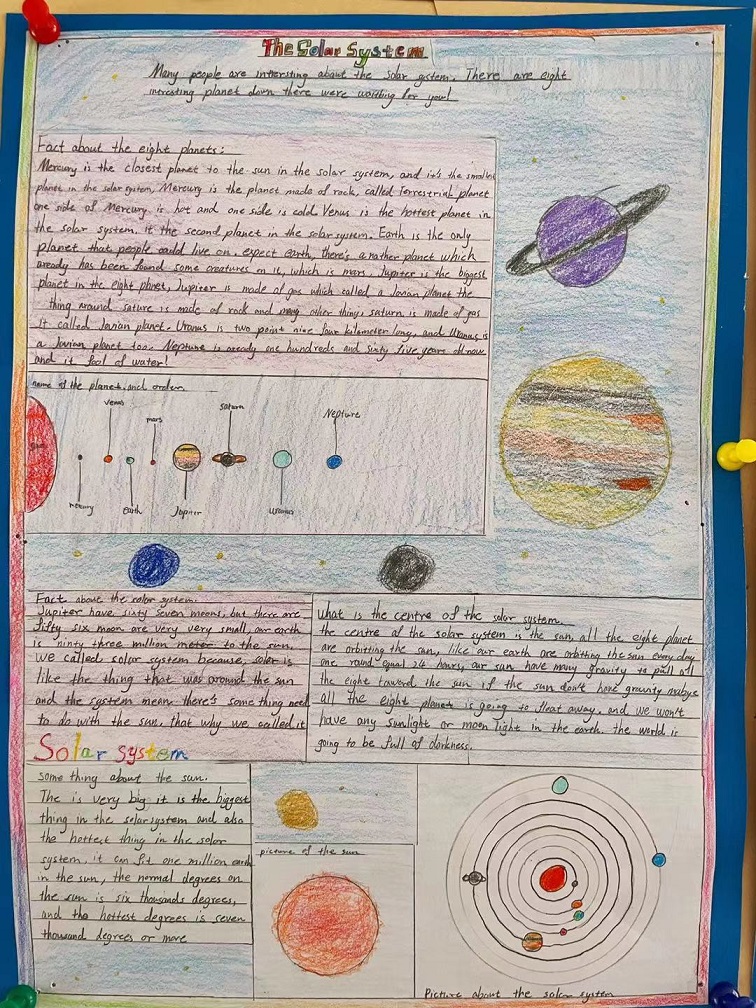 The Solar System
Many people are interesting about the solar system. There are eight
interesting planet down there were waiting for you!
Fact about the eight planets:
Mercury is the closest planet to the sun in the solar system, and it's the smallest
planet in the solar system, Mercury is the planet made of rock, called Terrestrial planet
one side of Mercury is hot and one side is cold Venus is the hottest planet in
the solar system. It the second planet in the solar system. Earth is the only
planet that people could live on, expect earth, there's a rather planet which
aready has been found some creatures on it, which is mars, Jupiter is the biggest
planet in the eight planet, Jupiter is made of gas which called a Jovian planet the
thing around sature is made of rock and many other things saturn is made of gas
it called Jovian planet. Uranus is two point nine four kilometer long, and Uranus is
a Jovian planet too. Neptune is aready one hundreds and sixty five years old now
and it fool of water!
name of the planet and order.
venus
mars
saturn
Neptune
mercury
Earth
Jopiter
uranus
Fact about the solar system.
Jupiter have sixty seven moons, but there are
fifty six moon are very very small, our earth
is ninty three million meter to the sun.
we called solar system because, soler is
like the thing that was around the sun
and the system mean there's something need
to do with the sun, that why we called it
Solar system
what is the centre of the solar system.
the centre of the solar system is the sun, all the eight planet
are orbiting the sun, like our earth are orbiting the sun every day
one round equal 24 hours, our sun have many gravity to pull all
the eight toward the sun if the sun don't have gravity maybe
all the eight planet is going to float away, and we won't
have any sunlight or moon light in the earth. the world is
going to be full of darkness.
some thing about the sun.
The is very big it is the biggest
thing in the solar system and also
the hottest thing in the solar
system, it can fit one million earth
in the sun, the normal degrees on
the sun is six thousands degrees,
and the hottest degrees is seven
thousand degrees or more
picture of the sun
Picture about the solar system